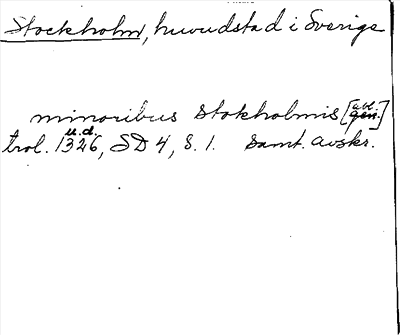 Stockholm, huvudstad i Sverige
minoribus Stokholmis [abl. gen.]
trol. u.d. 1326, SD 4, S. 1. Samt. avskr.